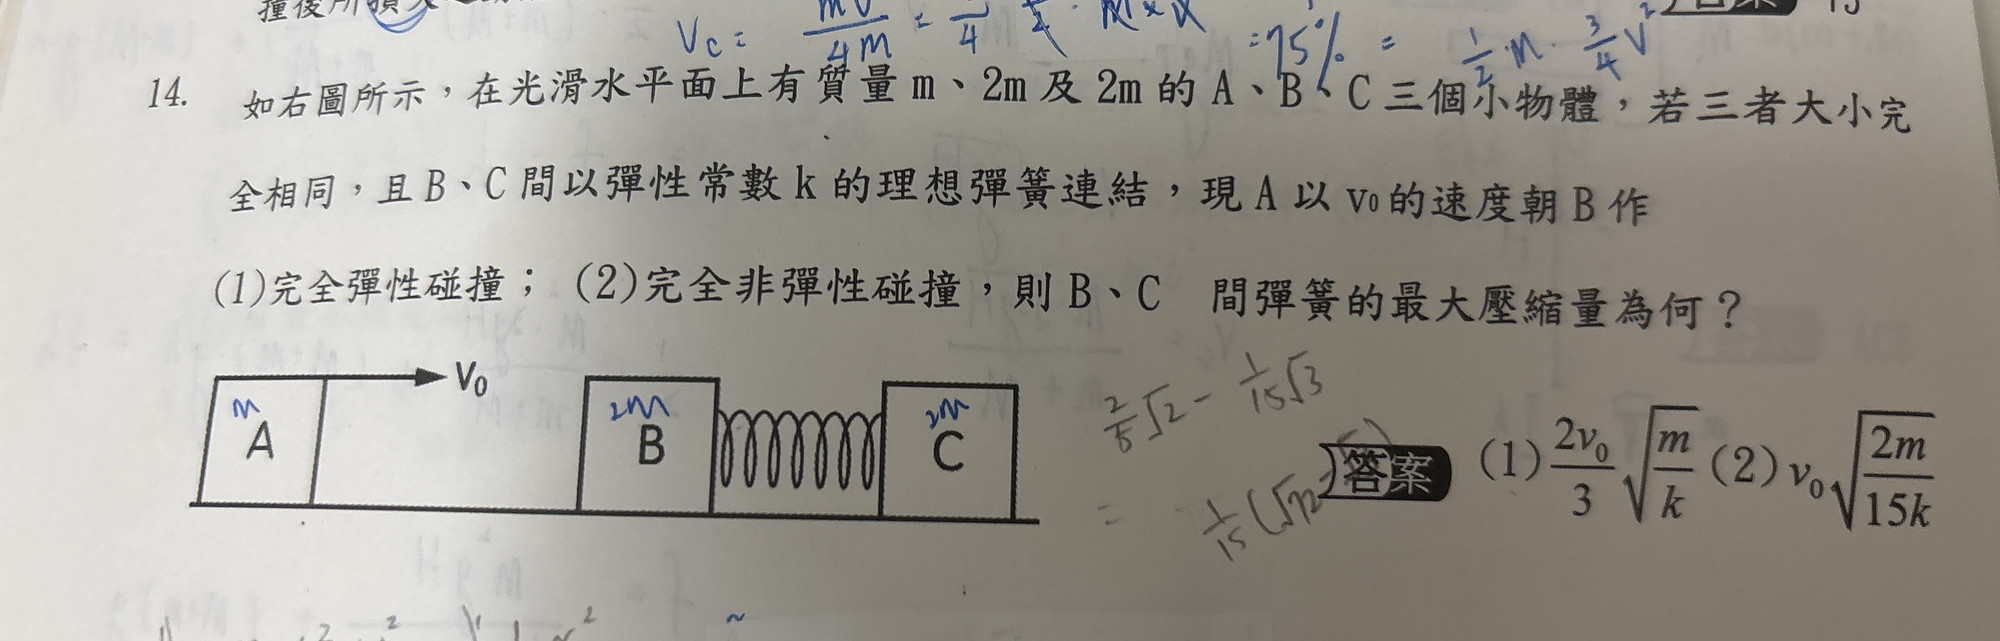 撞後所損
Vc = mv/4M = 75% = 1/2 · M · 3/4 V²
14. 如右圖所示，在光滑水平面上有質量 m、2m 及 2m 的 A、B、C 三個小物體，若三者大小完
全相同，且 B、C 間以彈性常數 k 的理想彈簧連結，現 A 以 v₀ 的速度朝 B 作
(1)完全彈性碰撞； (2)完全非彈性碰撞，則 B、C 間彈簧的最大壓縮量為何？
V₀
m 2m 2m
A B C
√2 - 1/15 √3
= 1/15 (√72
答案 (1) 2v₀/3 √(m/k) (2) v₀ √(2m/15k)